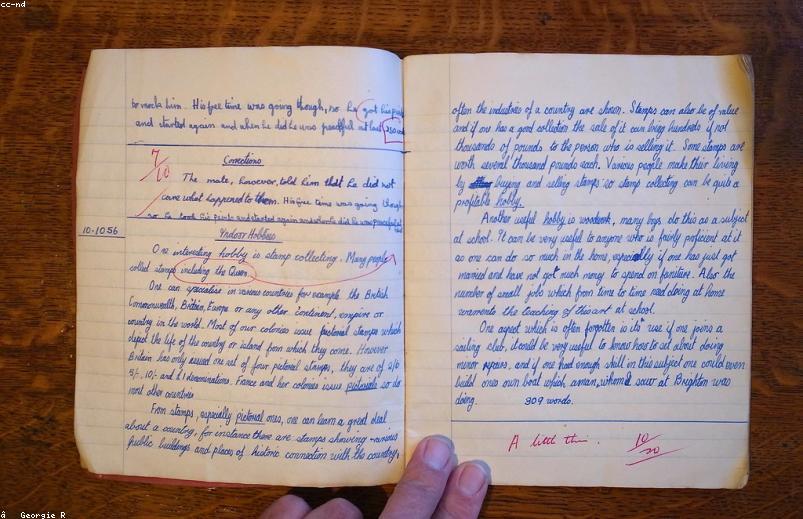 cc-nd
to mock him. His free time was going though, so he got his
and started again and when he did he was peaceful at last
7/10
Corrections
The mate, however, told him that he did not
care what happened to them. His free time was going though
so he took his and started again and when he did he was peaceful
10.10.56
Indoor Hobbies
One interesting hobby is stamp collecting. Many people
collect stamps including the Queen.
One can specialise in various countries for example the British
Commonwealth, Britain, Europe or any other continent, empire or
country in the world. Most of our colonies issue pictorial stamps which
depict the life of the country or island from which they come. However
Britain has only issued one set of four pictorial stamps, they are of 2/6
5/-, 10/- and £1 denominations. France and her colonies issue pictorials so do
most other countries
From stamps, especially pictorial ones, one can learn a great deal
about a country, for instance there are stamps showing various
public buildings and places of historic connection with the country,
often the industries of a country are shown. Stamps can also be of value
and if one has a good collection the sale of it can bring hundreds if not
thousands of pounds to the person who is selling it. Some stamps are
worth several thousand pounds each. Various people make their living
by buying and selling stamps so stamp collecting can be quite a
profitable hobby.
Another useful hobby is woodwork, many boys do this as a subject
at school. It can be very useful to anyone who is fairly proficient at it
as one can do so much in the home, especially if one has just got
married and have not got much money to spend on furniture. Also the
number of small jobs which from time to time need doing at home
warrents the teaching of this art at school.
One aspect which is often forgotten is its use if one joins a
sailing club, it could be very useful to know how to set about doing
minor repairs, and if one had enough skill in this subject one could even
build ones own boat which a man, whom I saw at Brighton was
doing. 309 words.
A little thin. 10/20
Georgie R